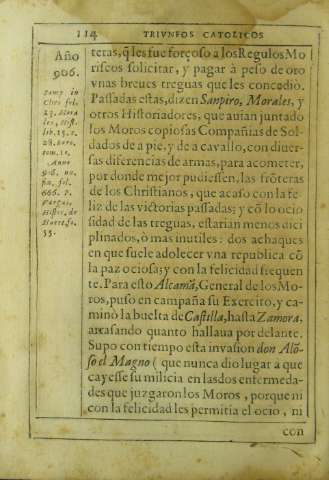 114 TRIVNFOS CATOLICOS
Año
906.
Samp. in
Chro. fol.
23. Mora
les, Hist.
lib. 15. c.
28. Boro.
tom. 10.
Anno
906. nu.
fin. fol.
666. P.
Vargas,
Histor. de
Huerta, fo.
55.
teras, q̃ les fue forçoso a los Regulos Mo
riscos solicitar, y pagar à peso de oro
vnas breues treguas que les concedio.
Passadas estas, dizen Sanpiro, Morales, y
otros Historiadores, que auian juntado
los Moros copiosas Compañias de Sol-
dados de a pie, y de a cavallo, con diuer-
sas diferencias de armas, para acometer,
por donde mejor pudiessen, las frõteras
de los Christianos, que acaso con la fe-
liz de las victorias passadas; y cõ lo ocio
sidad de las treguas, estarian menos dici
plinados, ò mas inutiles: dos achaques
en que suele adolecer vna republica cõ
la paz ociosa; y con la felicidad frequen
te. Para esto Alcamã, General de los Mo-
ros, puso en campaña su Exercito, y ca-
minò la buelta de Castilla, hasta Zamora,
arrasando quanto hallaua por delante.
Supo con tiempo esta invasion don Alõ-
so el Magno ( que nunca dio lugar a que
cayesse su milicia en las dos enfermeda-
des que juzgaron los Moros, porque ni
con la felicidad les permitia el ocio, ni
con